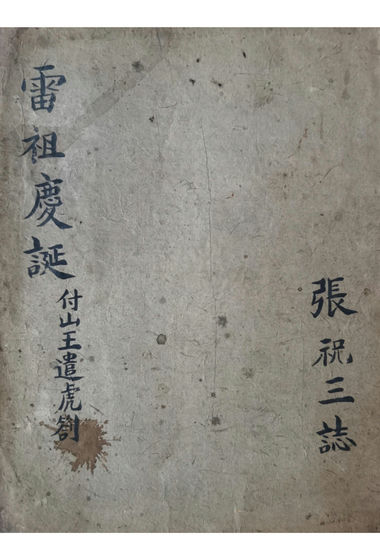 張祝三誌
雷祖慶誕
付山王遣虎劄